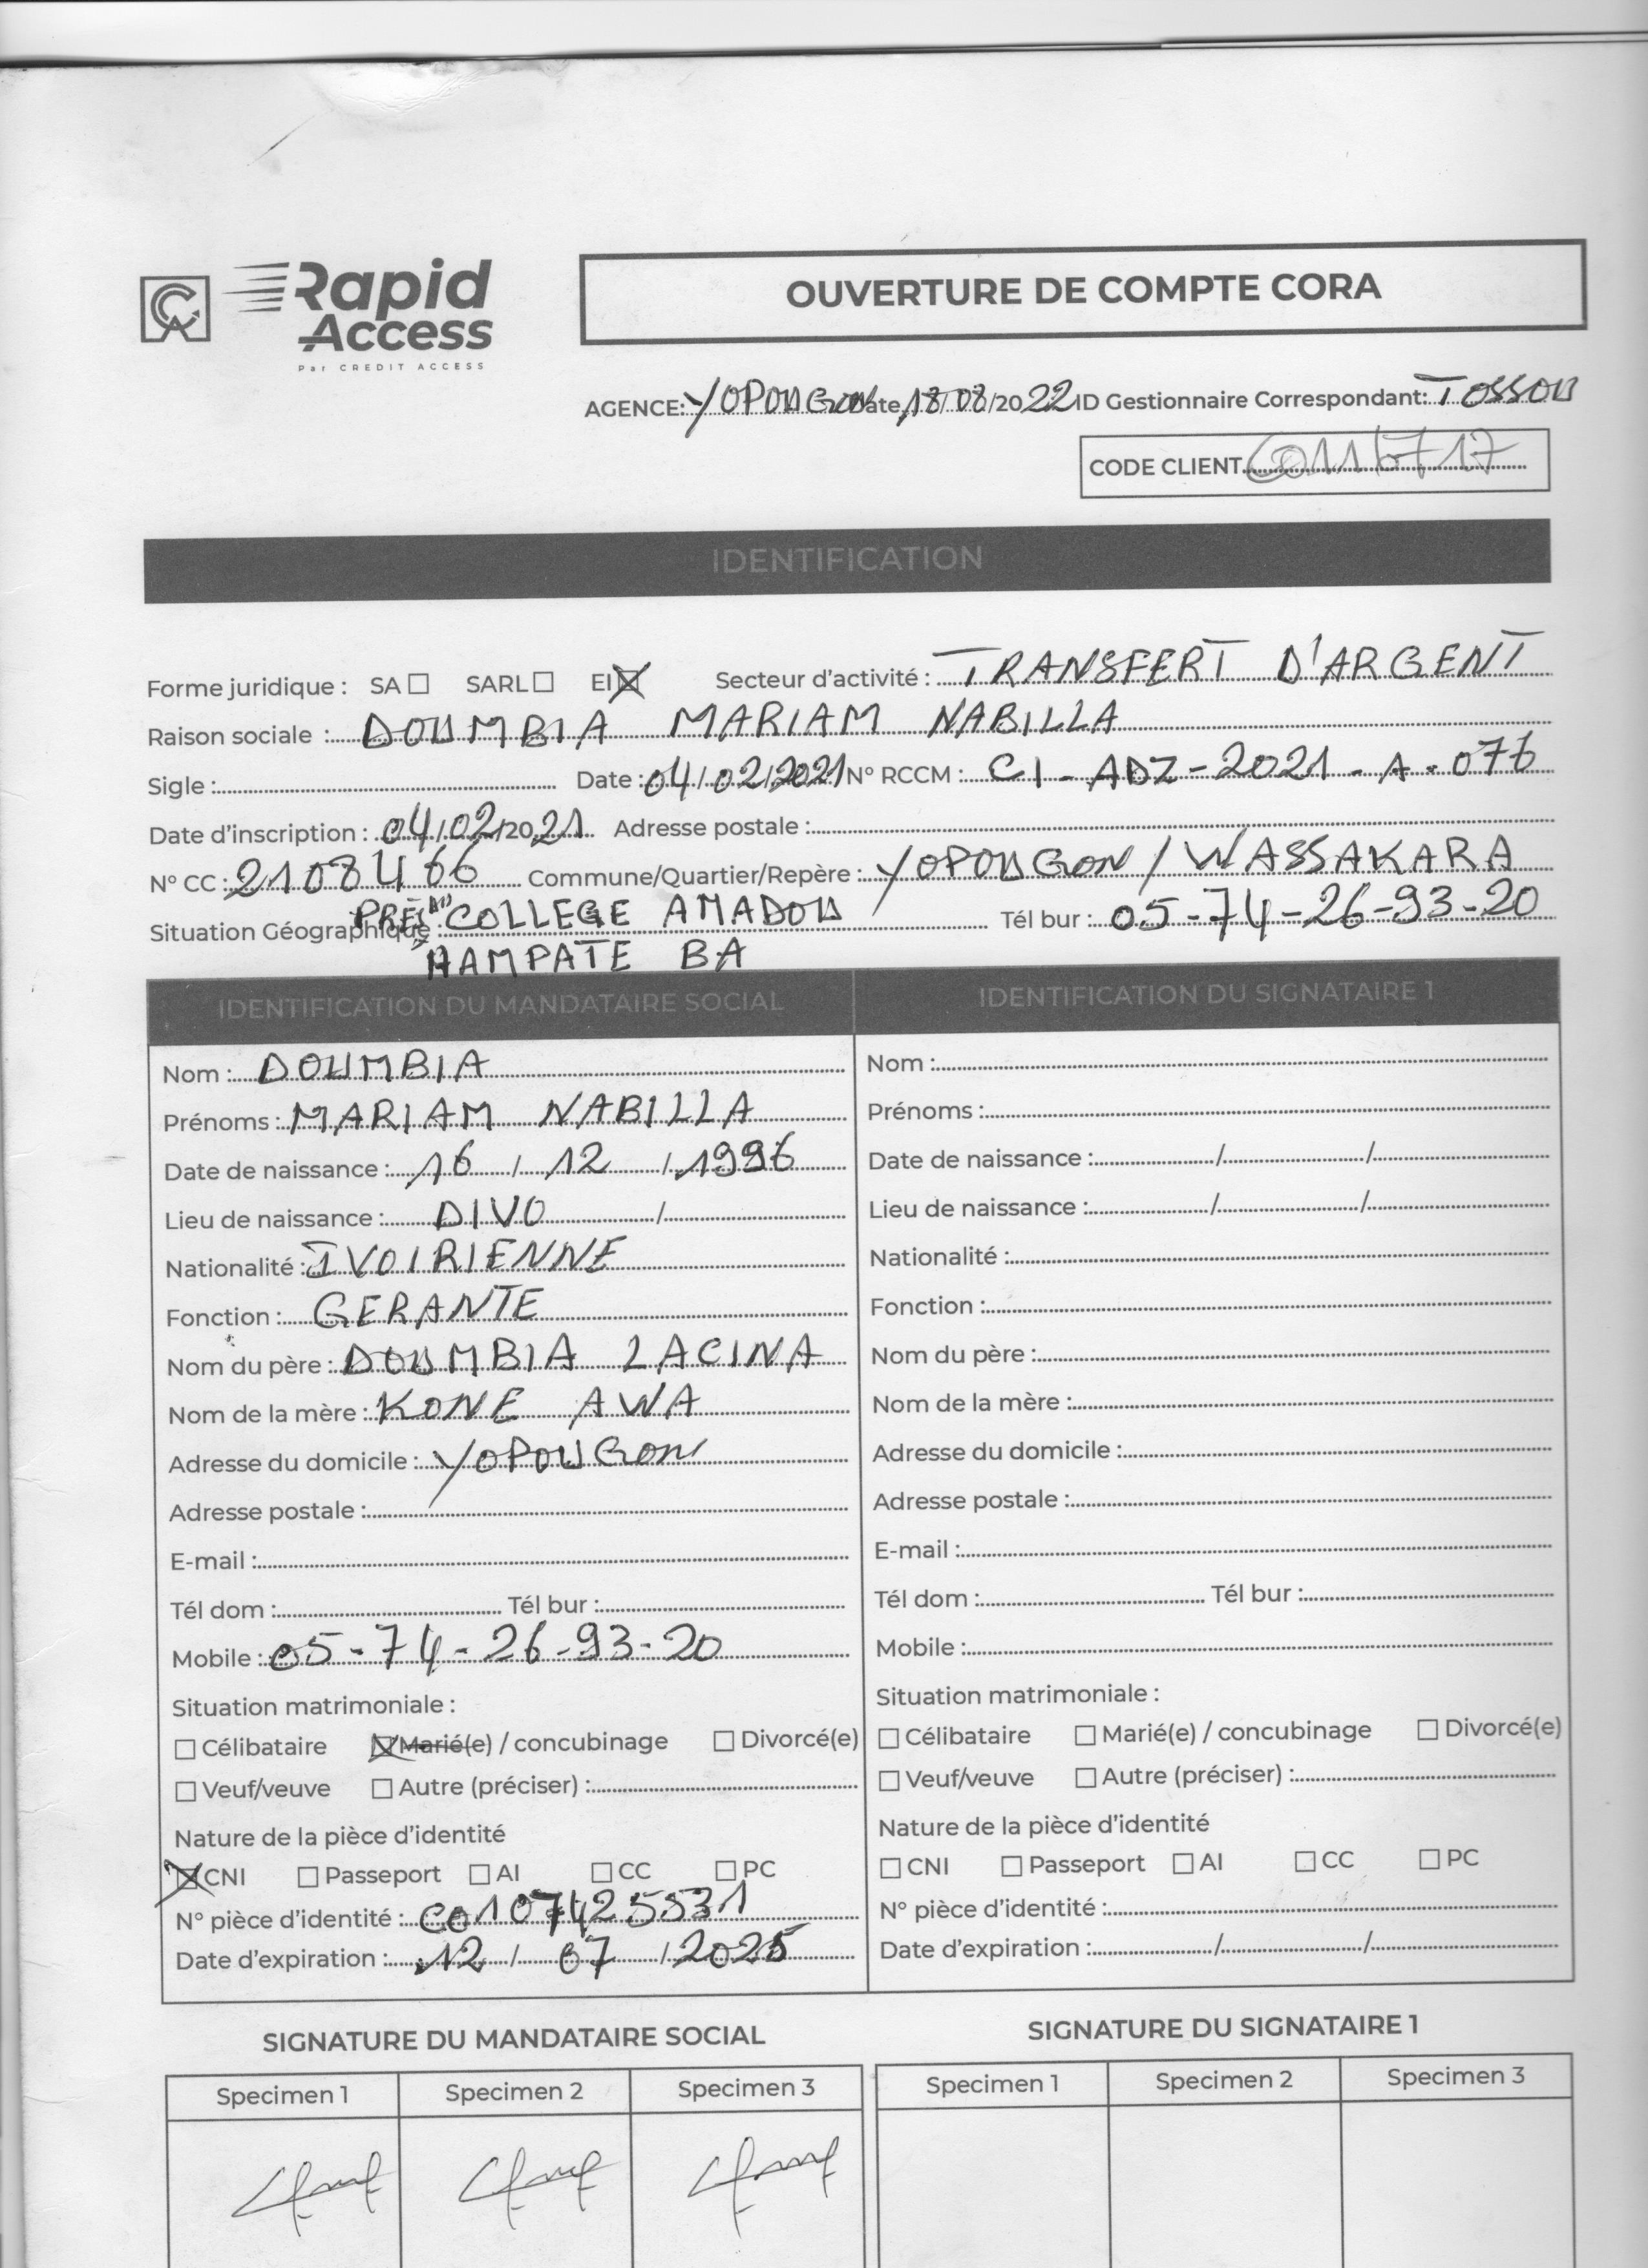 Rapid
Access
Par CREDIT ACCESS
OUVERTURE DE COMPTE CORA
AGENCE: YOPOUGON Date 18/08/2022 ID Gestionnaire Correspondant: TOSSOU
CODE CLIENT
IDENTIFICATION
Forme juridique : SA ☐ SARL ☐ EI ☒ Secteur d'activité : TRANSFERT D'ARGENT
Raison sociale : DOUMBIA MARIAM NABILLA
Sigle : Date : 04/02/2021 N° RCCM : CI-ADZ-2021-A-076
Date d'inscription : 04/02/2021 Adresse postale :
N° CC : 2108466 Commune/Quartier/Repère : YOPOUGON / WASSAKARA
Situation Géographique : PRÈS DU COLLEGE AMADOU Tél bur : 05-74-26-93-20
HAMPATE BA
IDENTIFICATION DU MANDATAIRE SOCIAL
Nom : DOUMBIA
Prénoms : MARIAM NABILLA
Date de naissance : 16 / 12 / 1996
Lieu de naissance : DIVO /
Nationalité : IVOIRIENNE
Fonction : GERANTE
Nom du père : DOUMBIA LACINA
Nom de la mère : KONE AWA
Adresse du domicile : YOPOUGON
Adresse postale :
E-mail :
Tél dom : Tél bur :
Mobile : 05-74-26-93-20
Situation matrimoniale :
☐ Célibataire ☒ Marié(e) / concubinage ☐ Divorcé(e)
☐ Veuf/veuve ☐ Autre (préciser) :
Nature de la pièce d'identité
☒ CNI ☐ Passeport ☐ AI ☐ CC ☐ PC
N° pièce d'identité :
Date d'expiration : 12 / 07 / 2025
IDENTIFICATION DU SIGNATAIRE 1
Nom :
Prénoms :
Date de naissance : / /
Lieu de naissance : / /
Nationalité :
Fonction :
Nom du père :
Nom de la mère :
Adresse du domicile :
Adresse postale :
E-mail :
Tél dom : Tél bur :
Mobile :
Situation matrimoniale :
☐ Célibataire ☐ Marié(e) / concubinage ☐ Divorcé(e)
☐ Veuf/veuve ☐ Autre (préciser) :
Nature de la pièce d'identité
☐ CNI ☐ Passeport ☐ AI ☐ CC ☐ PC
N° pièce d'identité :
Date d'expiration : / /
SIGNATURE DU MANDATAIRE SOCIAL
Specimen 1 Specimen 2 Specimen 3
SIGNATURE DU SIGNATAIRE 1
Specimen 1 Specimen 2 Specimen 3